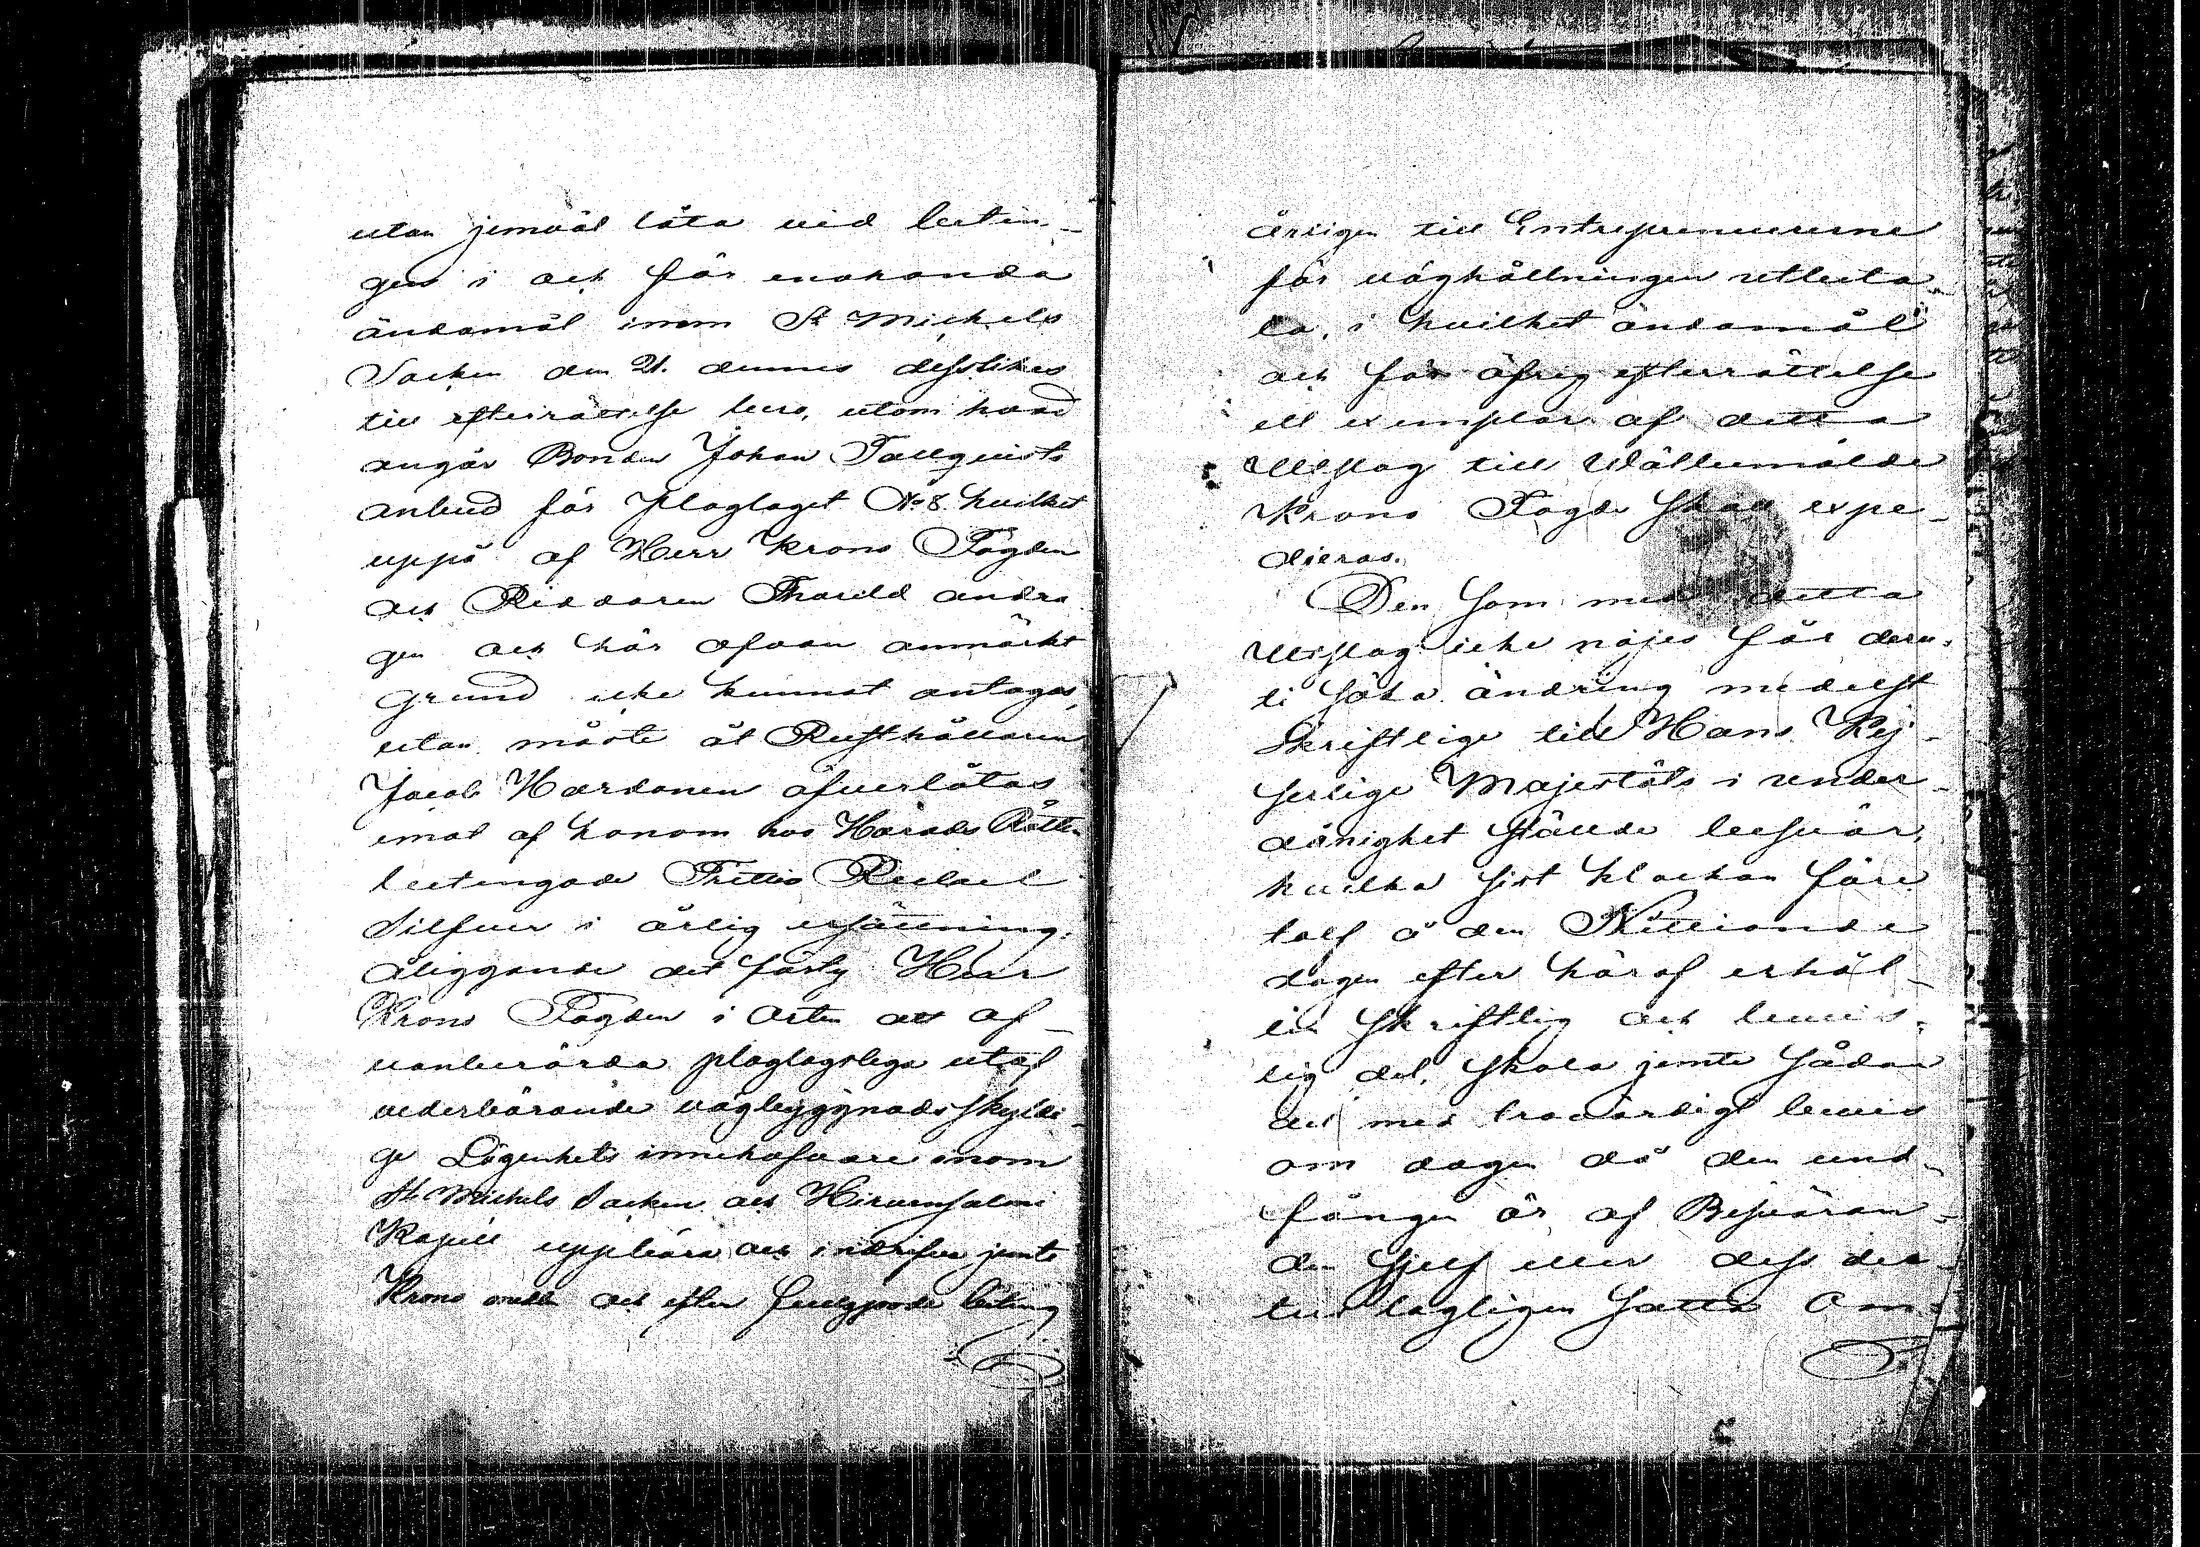 utan jemväl låta vid beting-
gen i och för enahanda
ändamål inom St Michels
Socken den 21. dennes desslikes
till efterrättelse bero, utom hvad
angår Bonden Johan Tallqvists
anbud för ploglaget No 8. hvilket
uppå af Herr Krono Fogden
och Riddaren Thauild andra
gen och här ofvan anmärkt
grund icke kunnat antagas,
utan måste åt Rusthållaren
Jacob Hardonen öfverlåtas
emot af honom hos Härads Rätten
betingade Trettio Rubel
Silfver i årlig ersättning.
Åliggande det förty Herr
Krono Fogden i Orten att of-
vanberörda ploglagslega utaf
vederbörande vägbyggnadsskyldi-
ge Lägenhets innehafvare inom
St. Michels Socken och Hirvensalmi
Kapell uppbära och indrifva jemte
Krono medlen och efter fullgjorde beting
årligen till Entrepreneurerne
för väghållningen utbeta-
la, i hvilket ändamål
och för öfrig efterrättelse
ett exemplar af detta
Utslag till Välbemälde
Krono Fogde skall expe-
dieras.
Den som med detta
Utslag icke nöjes får deru-
ti söka ändring medelst
Skriftlige till Hans Kej-
serlige Majestäts i under-
dånighet stälde besvär,
hvilka sist klockan före
tolf å den Nittionde
dagen efter häraf erhål-
len skriftlig och bevis-
lig del, skola jemte sådan
del med trovärdigt bevis
om dagen då den und-
fången är, af Besväran-
den sjelf eller dess der-
till lagligen satte Om-